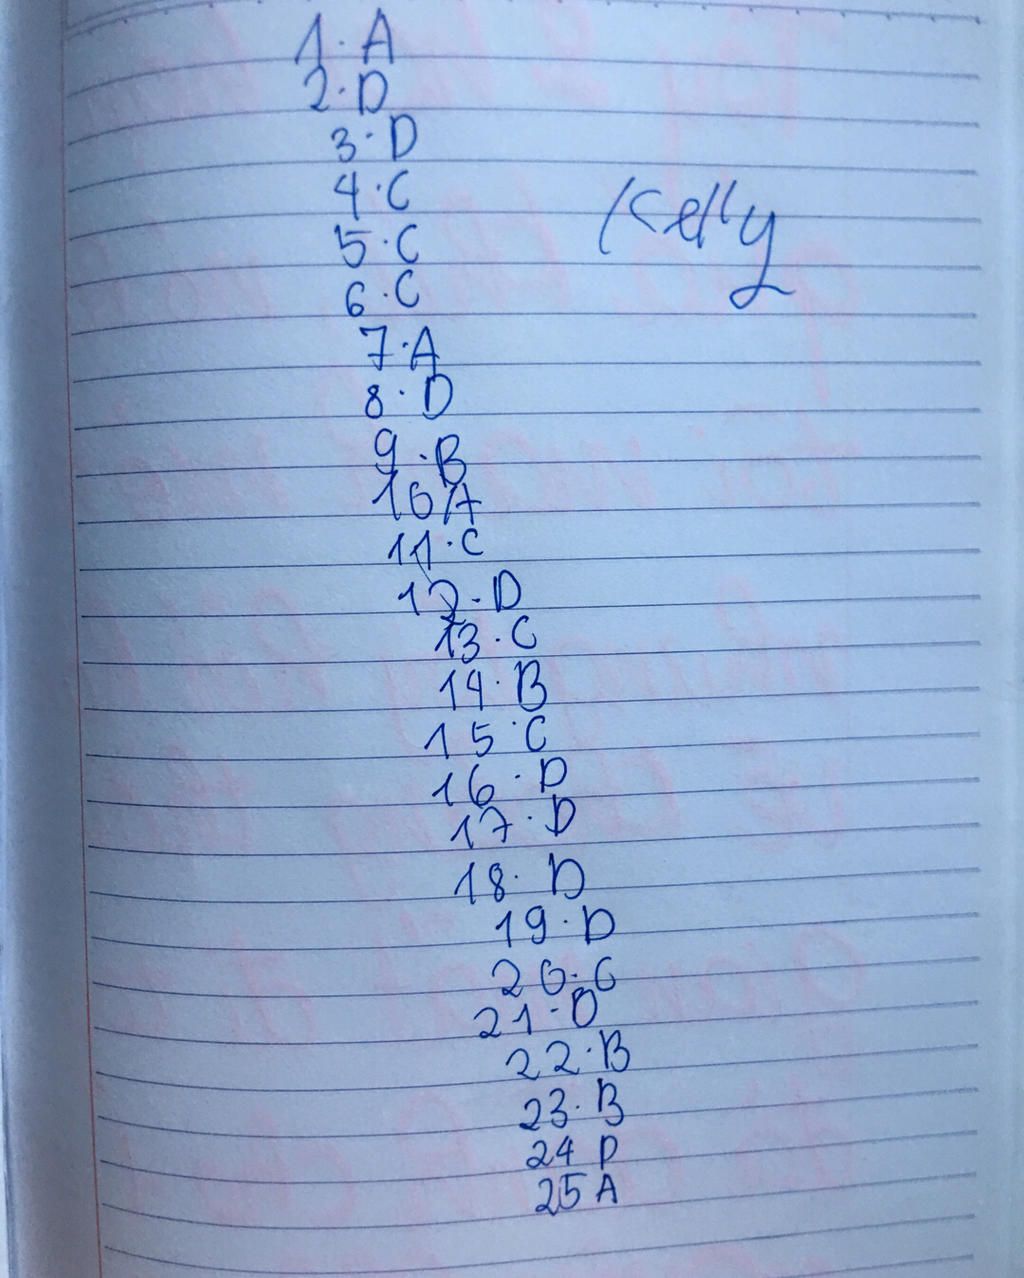 1. A
2. D
3. D
4. C
Kelly
5. C
6. C
7. A
8. D
9. B
10 A
11. C
12. D
13. C
14. B
15. C
16. D
17. D
18. D
19. D
20. C
21. D
22. B
23. B
24 D
25 A